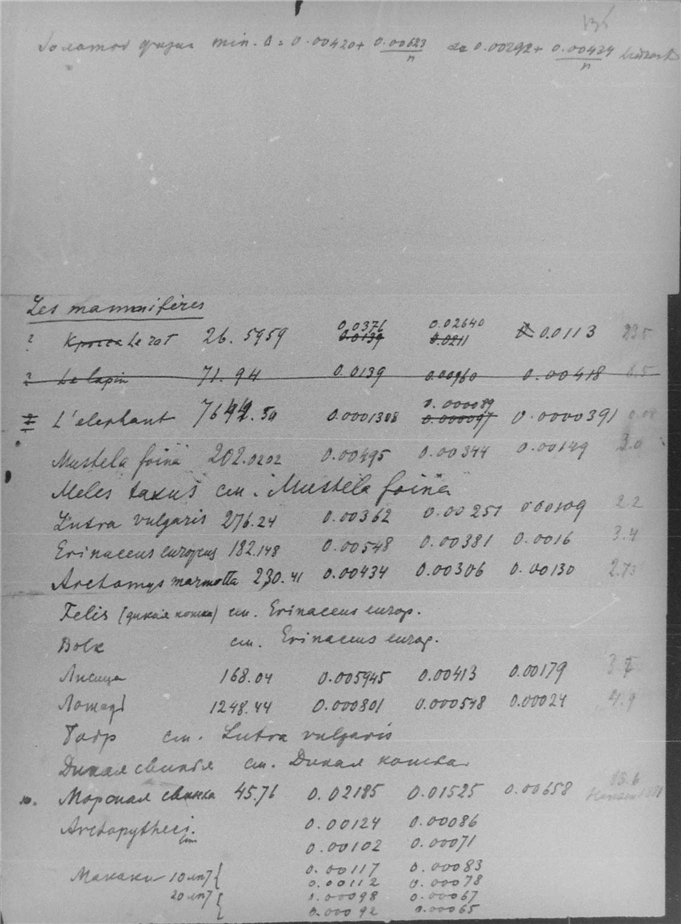 136
min. Δ = 0.00420 + 0.00623/n 0.00292 + 0.00424/n
Les mammifères
? Кроса Le rat 26.5959 0.0376 0.0139 0.02640 0.0211 0.0113 235
? Le lapin 71.94 0.0139 0.00960 0.00418 6.5
L'elephant 7642.50 0.0001308 0.000089 0.000097 0.0000391
Mustela foina 202.0202 0.00495 0.00344 0.00149 3.0
Meles taxus см. Mustela foina
Lutra vulgaris 276.24 0.00362 0.00251 0.00109 2.2
Erinaceus europeus 182.148 0.00548 0.00381 0.0016 3.4
Arctomys marmotta 230.41 0.00434 0.00306 0.00130 2.7
Felis (дикая кошка) см. Erinaceus europ.
Волк см. Erinaceus europ.
Лисица 168.04 0.005945 0.00413 0.00179 3.7
Лошадь 1248.44 0.000801 0.000548 0.00024 4.9
Бобр см. Lutra vulgaris
Дикая свинья см. Дикая кошка
Морская свинка 45.76 0.02185 0.01525 0.00658 13.6
0.00124 0.00086
0.00102 0.00071
Макаки 10 лет { 0.00117 0.00083
0.00112 0.00078
20 лет { 0.00098 0.00067
0.00092 0.00065